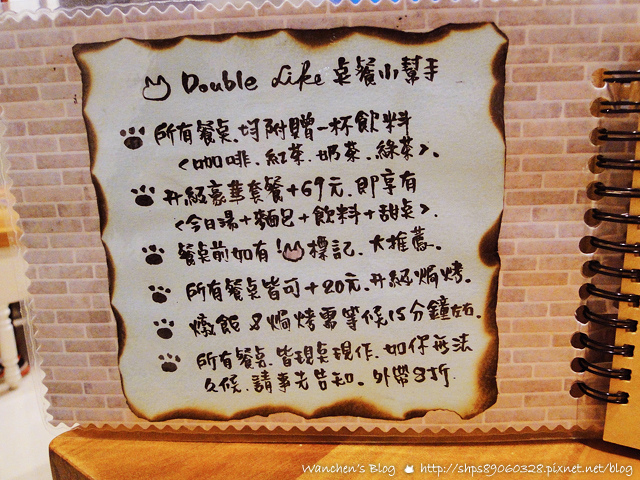 Double Like 桌餐小幫手
所有餐桌.均附贈一杯飲料
<咖啡.紅茶.奶茶.綠茶>.
升級豪華套餐+69元.即享有
<今日湯+麵包+飲料+甜桌>.
餐桌前如有!標記.大推薦。
所有餐桌皆可+20元.升級焗烤.
燉飯&焗烤需等候15分鐘左右.
所有餐桌.皆現桌現作.如你無法
久候.請事先告知。外帶8折.
Wanchen's Blog http://shps89060328.pixnet.net/blog